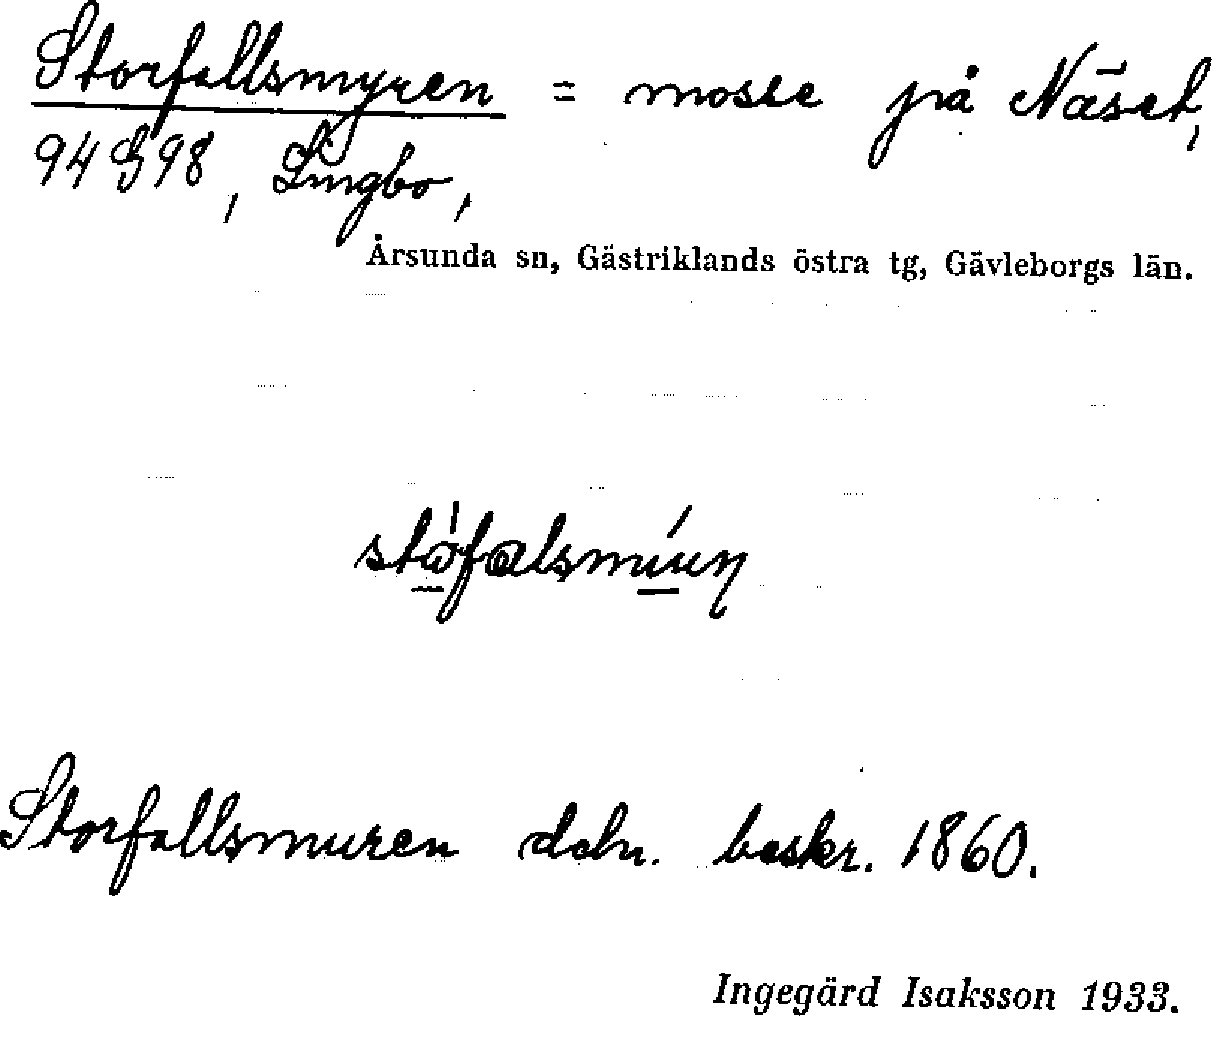 Storfallsmyren = mosse på Näset,
94G98, Lingbo,
Årsunda sn, Gästriklands östra tg, Gävleborgs län.
Storfallsmuren beskr. 1860.
Ingegärd Isaksson 1933.